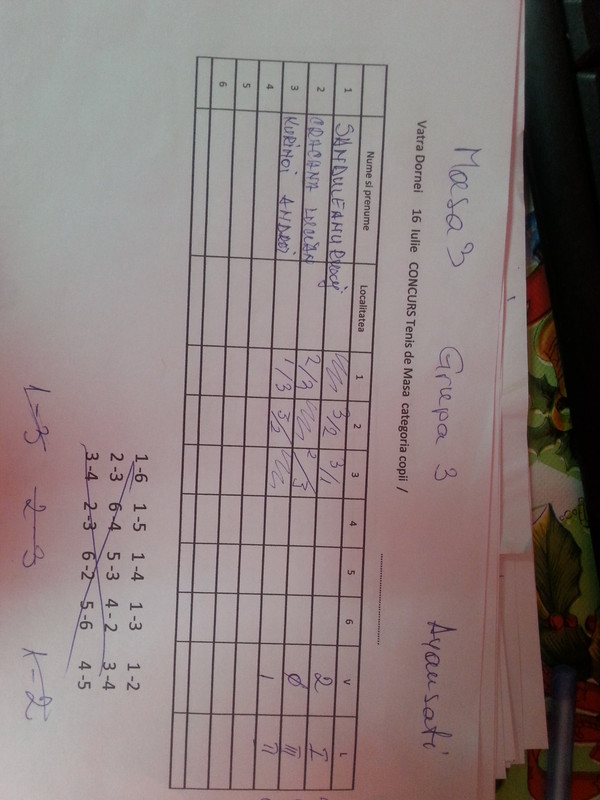 Masa 3 Grupa 3 Avansati
Vatra Dornei 16 Iulie CONCURS Tenis de Masa categoria copii / ............................
Nume si prenume Localitatea 1 2 3 4 5 6 V L
1 SANDULEANU 3/2 3/1 2 I
2 CRACANA LUCIAN 2/3 2/3 0 III
3 KURIMOI ANDREI 1/3 3/2 1 II
4
5
6
1-6 1-5 1-4 1-3 1-2
2-3 6-4 5-3 4-2 3-4
3-4 2-3 6-2 5-6 4-5
1-3 2-3 1-2